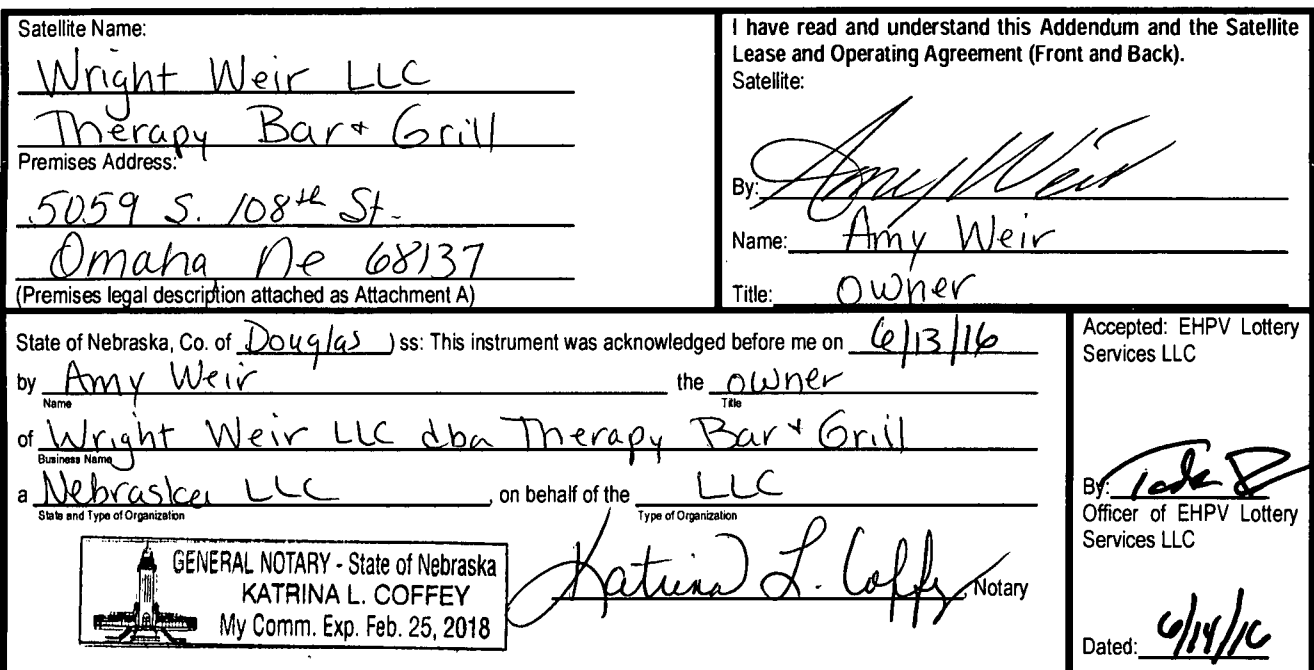 Satellite Name:
Wright Weir LLC
Therapy Bar + Grill
Premises Address:
5059 S. 108th St.
Omaha Ne 68137
(Premises legal description attached as Attachment A)
I have read and understand this Addendum and the Satellite
Lease and Operating Agreement (Front and Back).
Satellite:
By: Amy Weir
Name: Amy Weir
Title: Owner
State of Nebraska, Co. of Douglas ) ss: This instrument was acknowledged before me on 6/13/16
by Amy Weir the owner
Name Title
of Wright Weir LLC dba Therapy Bar + Grill
Business Name
a Nebraska LLC, on behalf of the LLC
State and Type of Organization Type of Organization
GENERAL NOTARY - State of Nebraska
KATRINA L. COFFEY
My Comm. Exp. Feb. 25, 2018
Katrina L. Coffey, Notary
Accepted: EHPV Lottery
Services LLC
By:
Officer of EHPV Lottery
Services LLC
Dated: 6/14/16